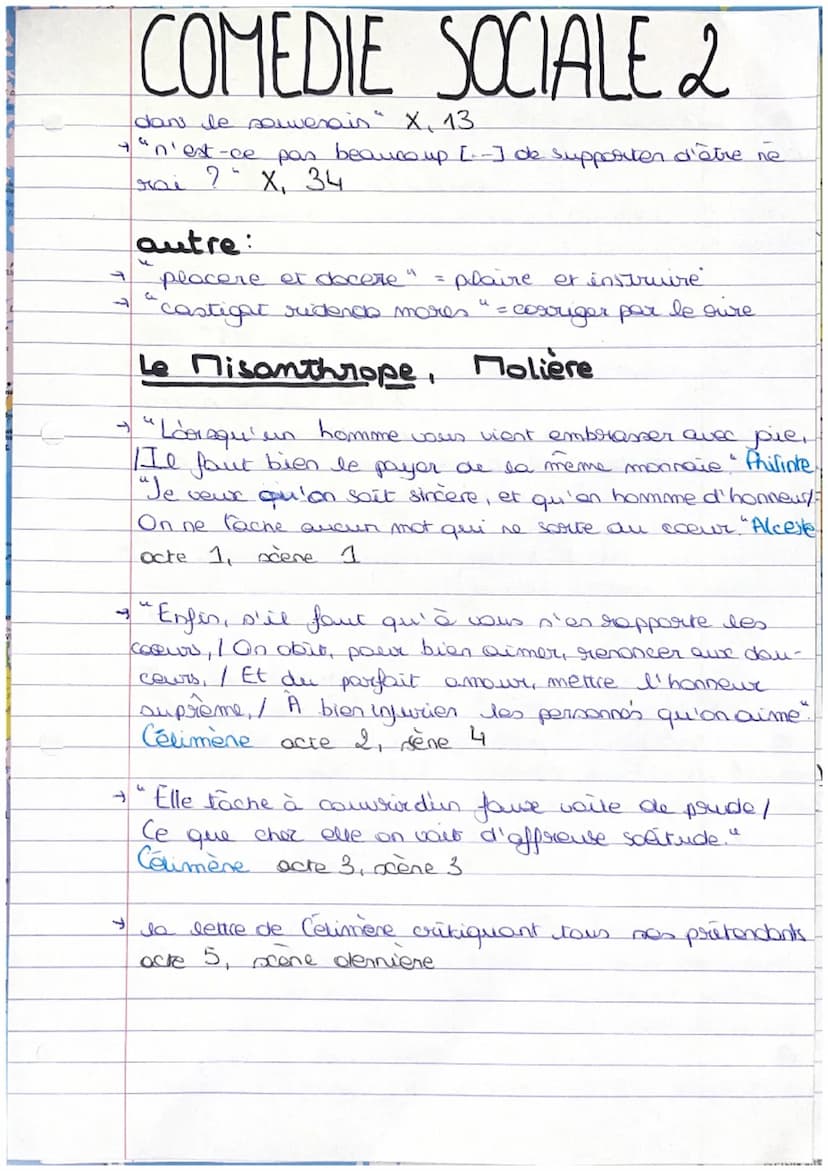 COMEDIE SOCIALE 2
dans le souverain" X, 13
→ "n'est-ce pas beaucoup [...] de supporter d'être né
roi ?" X, 34
autre:
→ "placere et docere" = plaire et instruire
→ "castigat ridendo mores" = corriger par le rire
Le Misanthrope, Molière
→ "Lorsqu'un homme vous vient embrasser avec joie,
/ Il faut bien le payer de la même monnaie" Philinte
"Je veux qu'on soit sincère, et qu'en homme d'honneur/
On ne lâche aucun mot qui ne sorte du cœur." Alceste
acte 1, scène 1
→ "Enfin, s'il faut qu'à vous s'en rapporte les
cœurs, / On doit, pour bien aimer, renoncer aux dou-
ceurs, / Et du parfait amour, mettre l'honneur
suprême, / À bien injurier les personnes qu'on aime"
Célimène acte 2, scène 4
→ "Elle tâche à couvrir d'un faux voile de prude /
Ce que chez elle on voit d'affreuse solitude."
Célimène acte 3, scène 3
→ la lettre de Célimène critiquant tous ses prétendants
acte 5, scène dernière